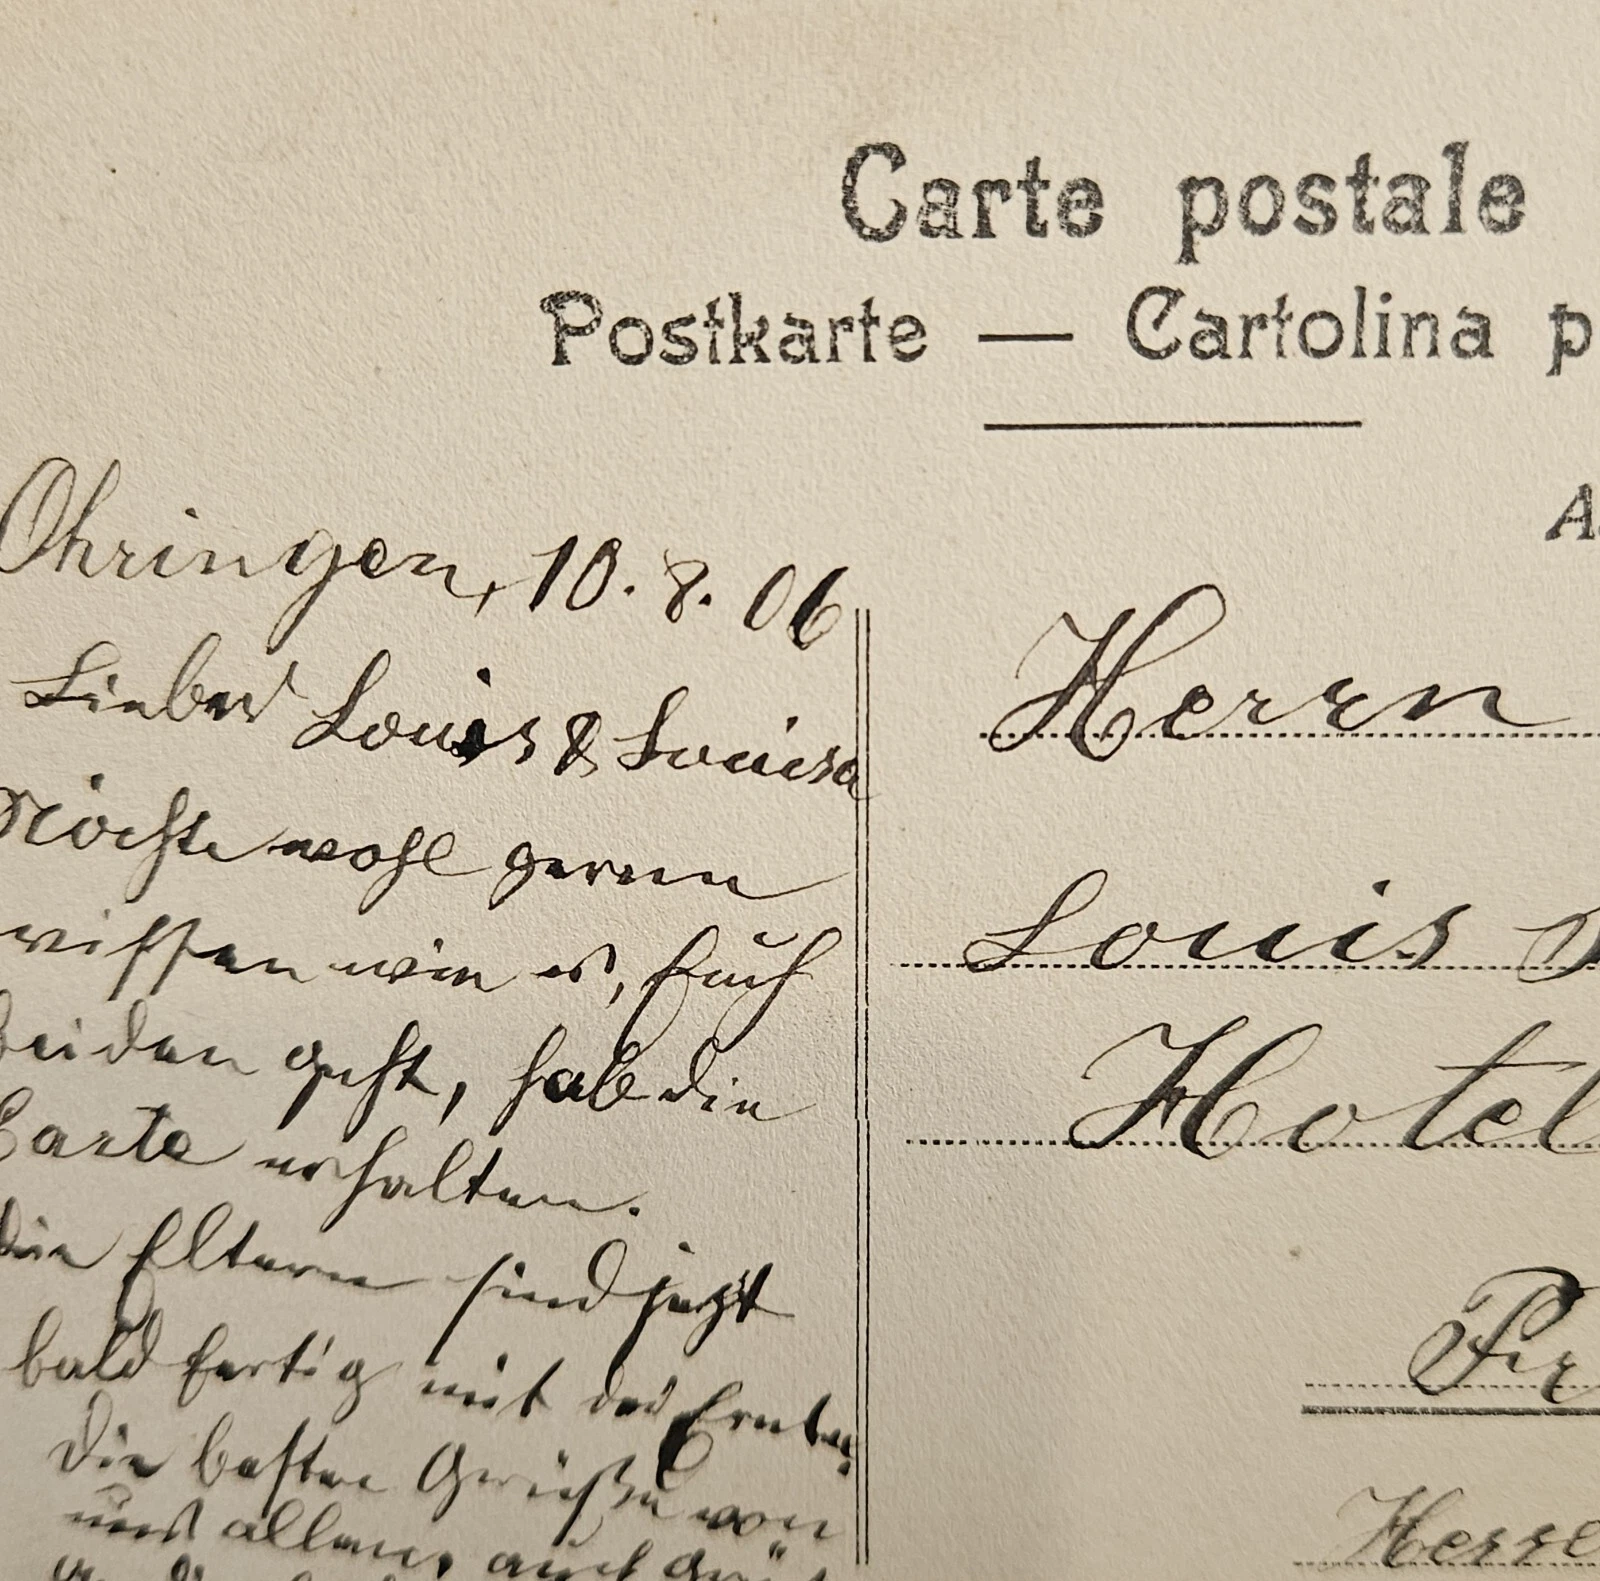 Carte postale
Postkarte — Cartolina p
Ohringen, 10. 8. 06
Lieber Louis & Louisa
Möchte wohl gerne
wissen wie es, Euch
beiden geht, hab die
Carte erhalten.
die Eltern sind jetzt
bald fertig mit der Ernte.
Die besten Grüße von
uns allen, auch
A
Herrn
Louis
Hotel
Hesse